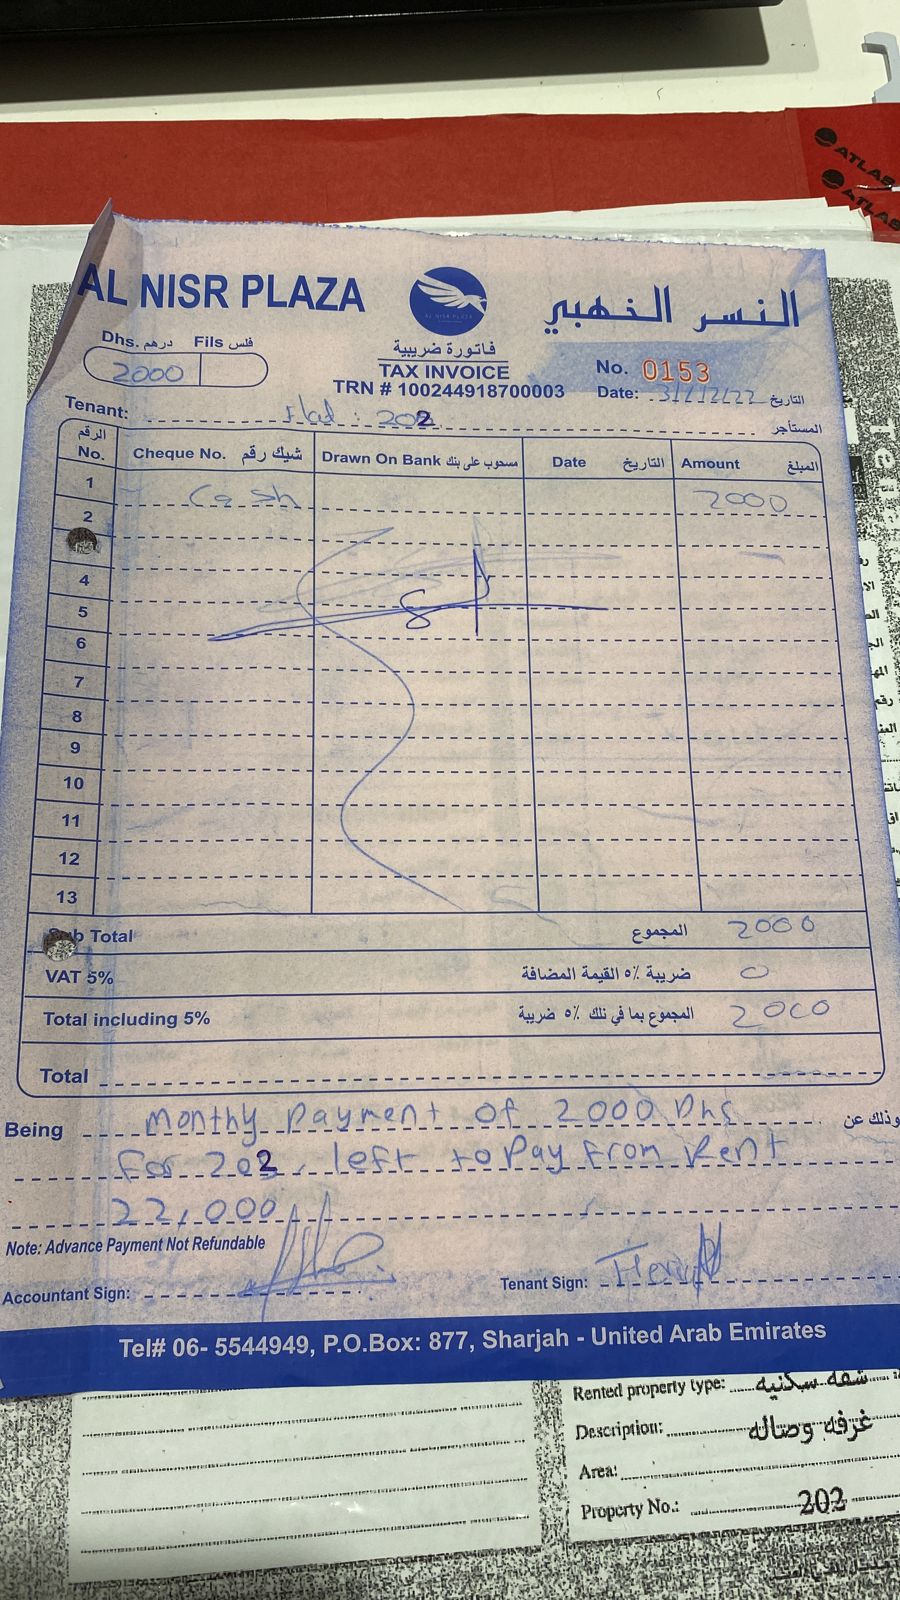 ATLAS
ATLAS
AL NISR PLAZA
النسر الذهبي
AL NISR PLAZA
Dhs. درهم Fils فلس
2000
فاتورة ضريبية
TAX INVOICE
TRN # 100244918700003
No. 0153
Date: 31/12/22 التاريخ
Tenant: Flat : 202 المستأجر
الرقم No. Cheque No. شيك رقم Drawn On Bank مسحوب على بنك Date التاريخ Amount المبلغ
1 Cash 2000
2
4
5
6
7
8
9
10
11
12
13
Sub Total المجموع 2000
VAT 5% ضريبة ٥٪ القيمة المضافة 0
Total including 5% المجموع بما في تلك ٥٪ ضريبة 2000
Total
Being Monthly Payment of 2000 Dhs وذلك عن
For 202, left to Pay From Rent
22,000
Note: Advance Payment Not Refundable
Accountant Sign: Tenant Sign:
Tel# 06- 5544949, P.O.Box: 877, Sharjah - United Arab Emirates
Rented property type: شقه سكنيه
Description: غرفه وصاله
Area:
Property No.: 202